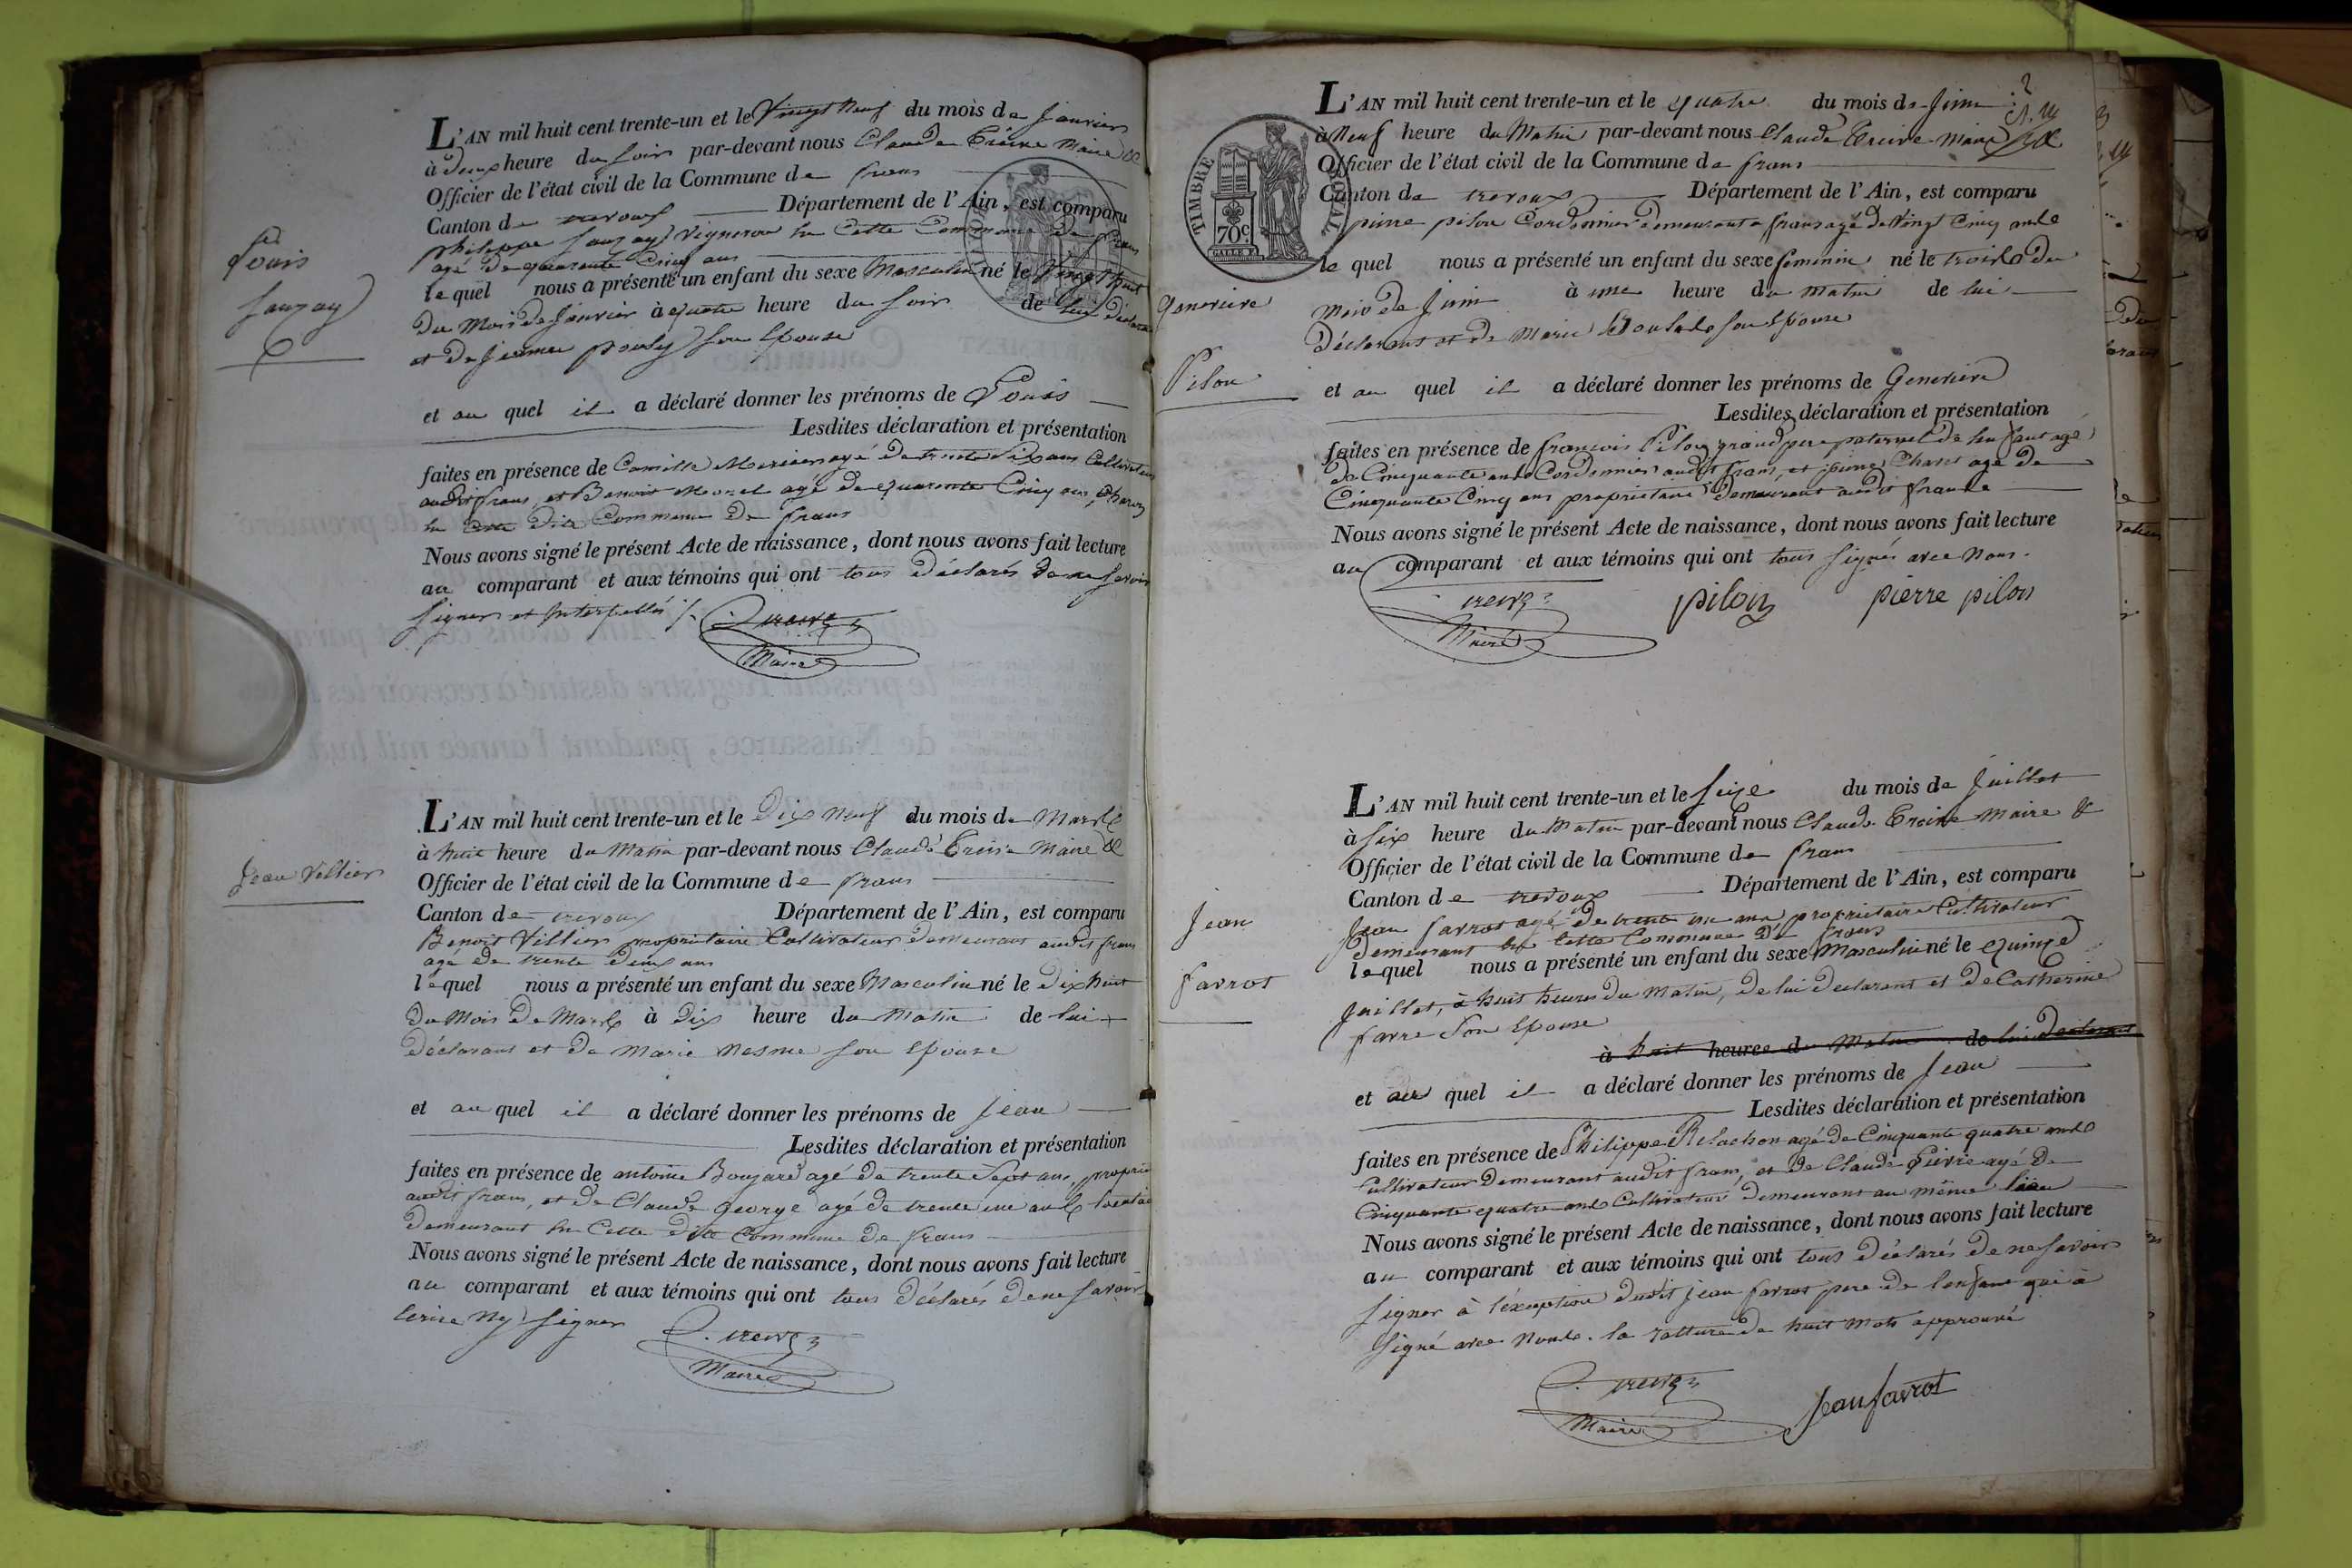 L'AN mil huit cent trente-un et le Vingt Neuf du mois de Janvier
à deux heure du soir par-devant nous Claude Creive Maire &
Officier de l'état civil de la Commune de frans
Canton de trevoux Département de l'Ain, est comparu
philippe sauzay Vigneron en Cette Commune de frans
agé de quarente Cinq ans
lequel nous a présenté un enfant du sexe Masculin né le Vingt huit
du Mois de Janvier à quatre heure du soir de lui déclarant
et de Jeanne son Epouse
et au quel il a déclaré donner les prénoms de Louis
Lesdites déclaration et présentation
faites en présence de Camille agé de trente Six ans Cultivateur
audit frans, et Benoit agé de quarente Cinq ans,
en Cette dite Commune de frans
Nous avons signé le présent Acte de naissance, dont nous avons fait lecture
au comparant et aux témoins qui ont tous déclarés de ne savoir
signer et Interpellés
Maire
Louis
sauzay
L'AN mil huit cent trente-un et le Dix neuf du mois de Mars
à huit heure du Matin par-devant nous Claude Creive Maire &
Officier de l'état civil de la Commune de frans
Canton de trevoux Département de l'Ain, est comparu
Benoit Villier propriétaire Cultivateur demeurant audit frans
agé de trente deux ans
lequel nous a présenté un enfant du sexe Masculin né le dix huit
du Mois de Mars à dix heure du Matin de lui
déclarant et de Marie Mesme son Epouse
et au quel il a déclaré donner les prénoms de Jean
Lesdites déclaration et présentation
faites en présence de antoine Boujard agé de trente Sept ans,
audit frans, et de Claude George agé de trente un ans
demeurant en Cette dite Commune de frans
Nous avons signé le présent Acte de naissance, dont nous avons fait lecture
au comparant et aux témoins qui ont tous déclarés de ne savoir
Ecrire Ny Signer
Maire
Jean Villier
L'AN mil huit cent trente-un et le quatre du mois de Juin
à Neuf heure du Matin par-devant nous Claude Creive Maire &
Officier de l'état civil de la Commune de frans
Canton de trevoux Département de l'Ain, est comparu
pierre pilon Cordonnier demeurant a frans agé de Vingt Cinq ans
le quel nous a présenté un enfant du sexe feminin né le trois du
mois de Juin à une heure du matin de lui
déclarant et de Marie son Epouse
et au quel il a déclaré donner les prénoms de Genevieve
Lesdites déclaration et présentation
faites en présence de francois Pilon grand pere paternel de lenfant agé
de Cinquante ans Cordonnier audit frans, et pierre agé de
Cinquante Cinq ans propriétaire demeurant audit frans
Nous avons signé le présent Acte de naissance, dont nous avons fait lecture
au comparant et aux témoins qui ont tous signés avec Nous.
Maire pilon pierre pilon
TIMBRE ROYAL
70c
Genevieve
Pilon
L'AN mil huit cent trente-un et le Seize du mois de Juillet
à Six heure du Matin par-devant nous Claude Creive Maire &
Officier de l'état civil de la Commune de frans
Canton de trevoux Département de l'Ain, est comparu
Jean farrot agé de trente un ans propriétaire Cultivateur
demeurant en Cette Commune de frans
lequel nous a présenté un enfant du sexe Masculin né le quinze
Juillet, à huit heures du Matin, de lui declarant et de Catherine
farre Son Epouse
à huit heures du Matin de lui declarant
et au quel il a déclaré donner les prénoms de Jean
Lesdites déclaration et présentation
faites en présence de Philippe Relachon agé de Cinquante quatre ans
Cultivateur demeurant audit frans, et de Claude agé de
Cinquante quatre ans Cultivateur demeurant au même lieu
Nous avons signé le présent Acte de naissance, dont nous avons fait lecture
au comparant et aux témoins qui ont tous déclarés de ne savoir
Signer à l'exception dudit Jean farrot pere de lenfant qui à
Signé avec Nous. la rature de huit mots approuvé
Maire Jean farrot
Jean
farrot